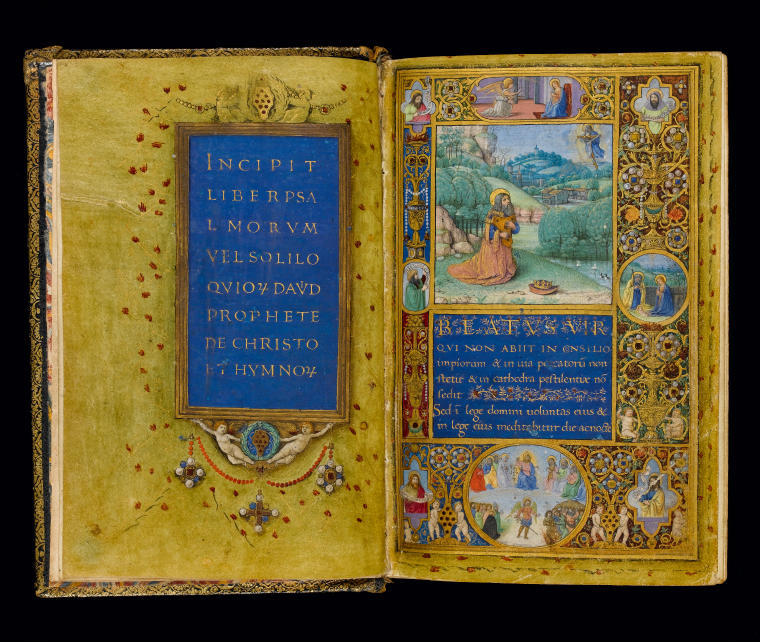 INCIPIT
LIBER PSA
LMORVM
VEL SOLILO
QVIOꝝ DAVD
PROPHETE
DE CHRISTO
ET HYMNOꝝ
BEATVS VIR
QVI NON ABIIT IN CNSILIO
impiorum & in uia peccatorũ non
stetit & in cathedra pestilentiae nõ
sedit
Sed ĩ lege domini uoluntas eius &
in lege eius meditabitur die ac nocte